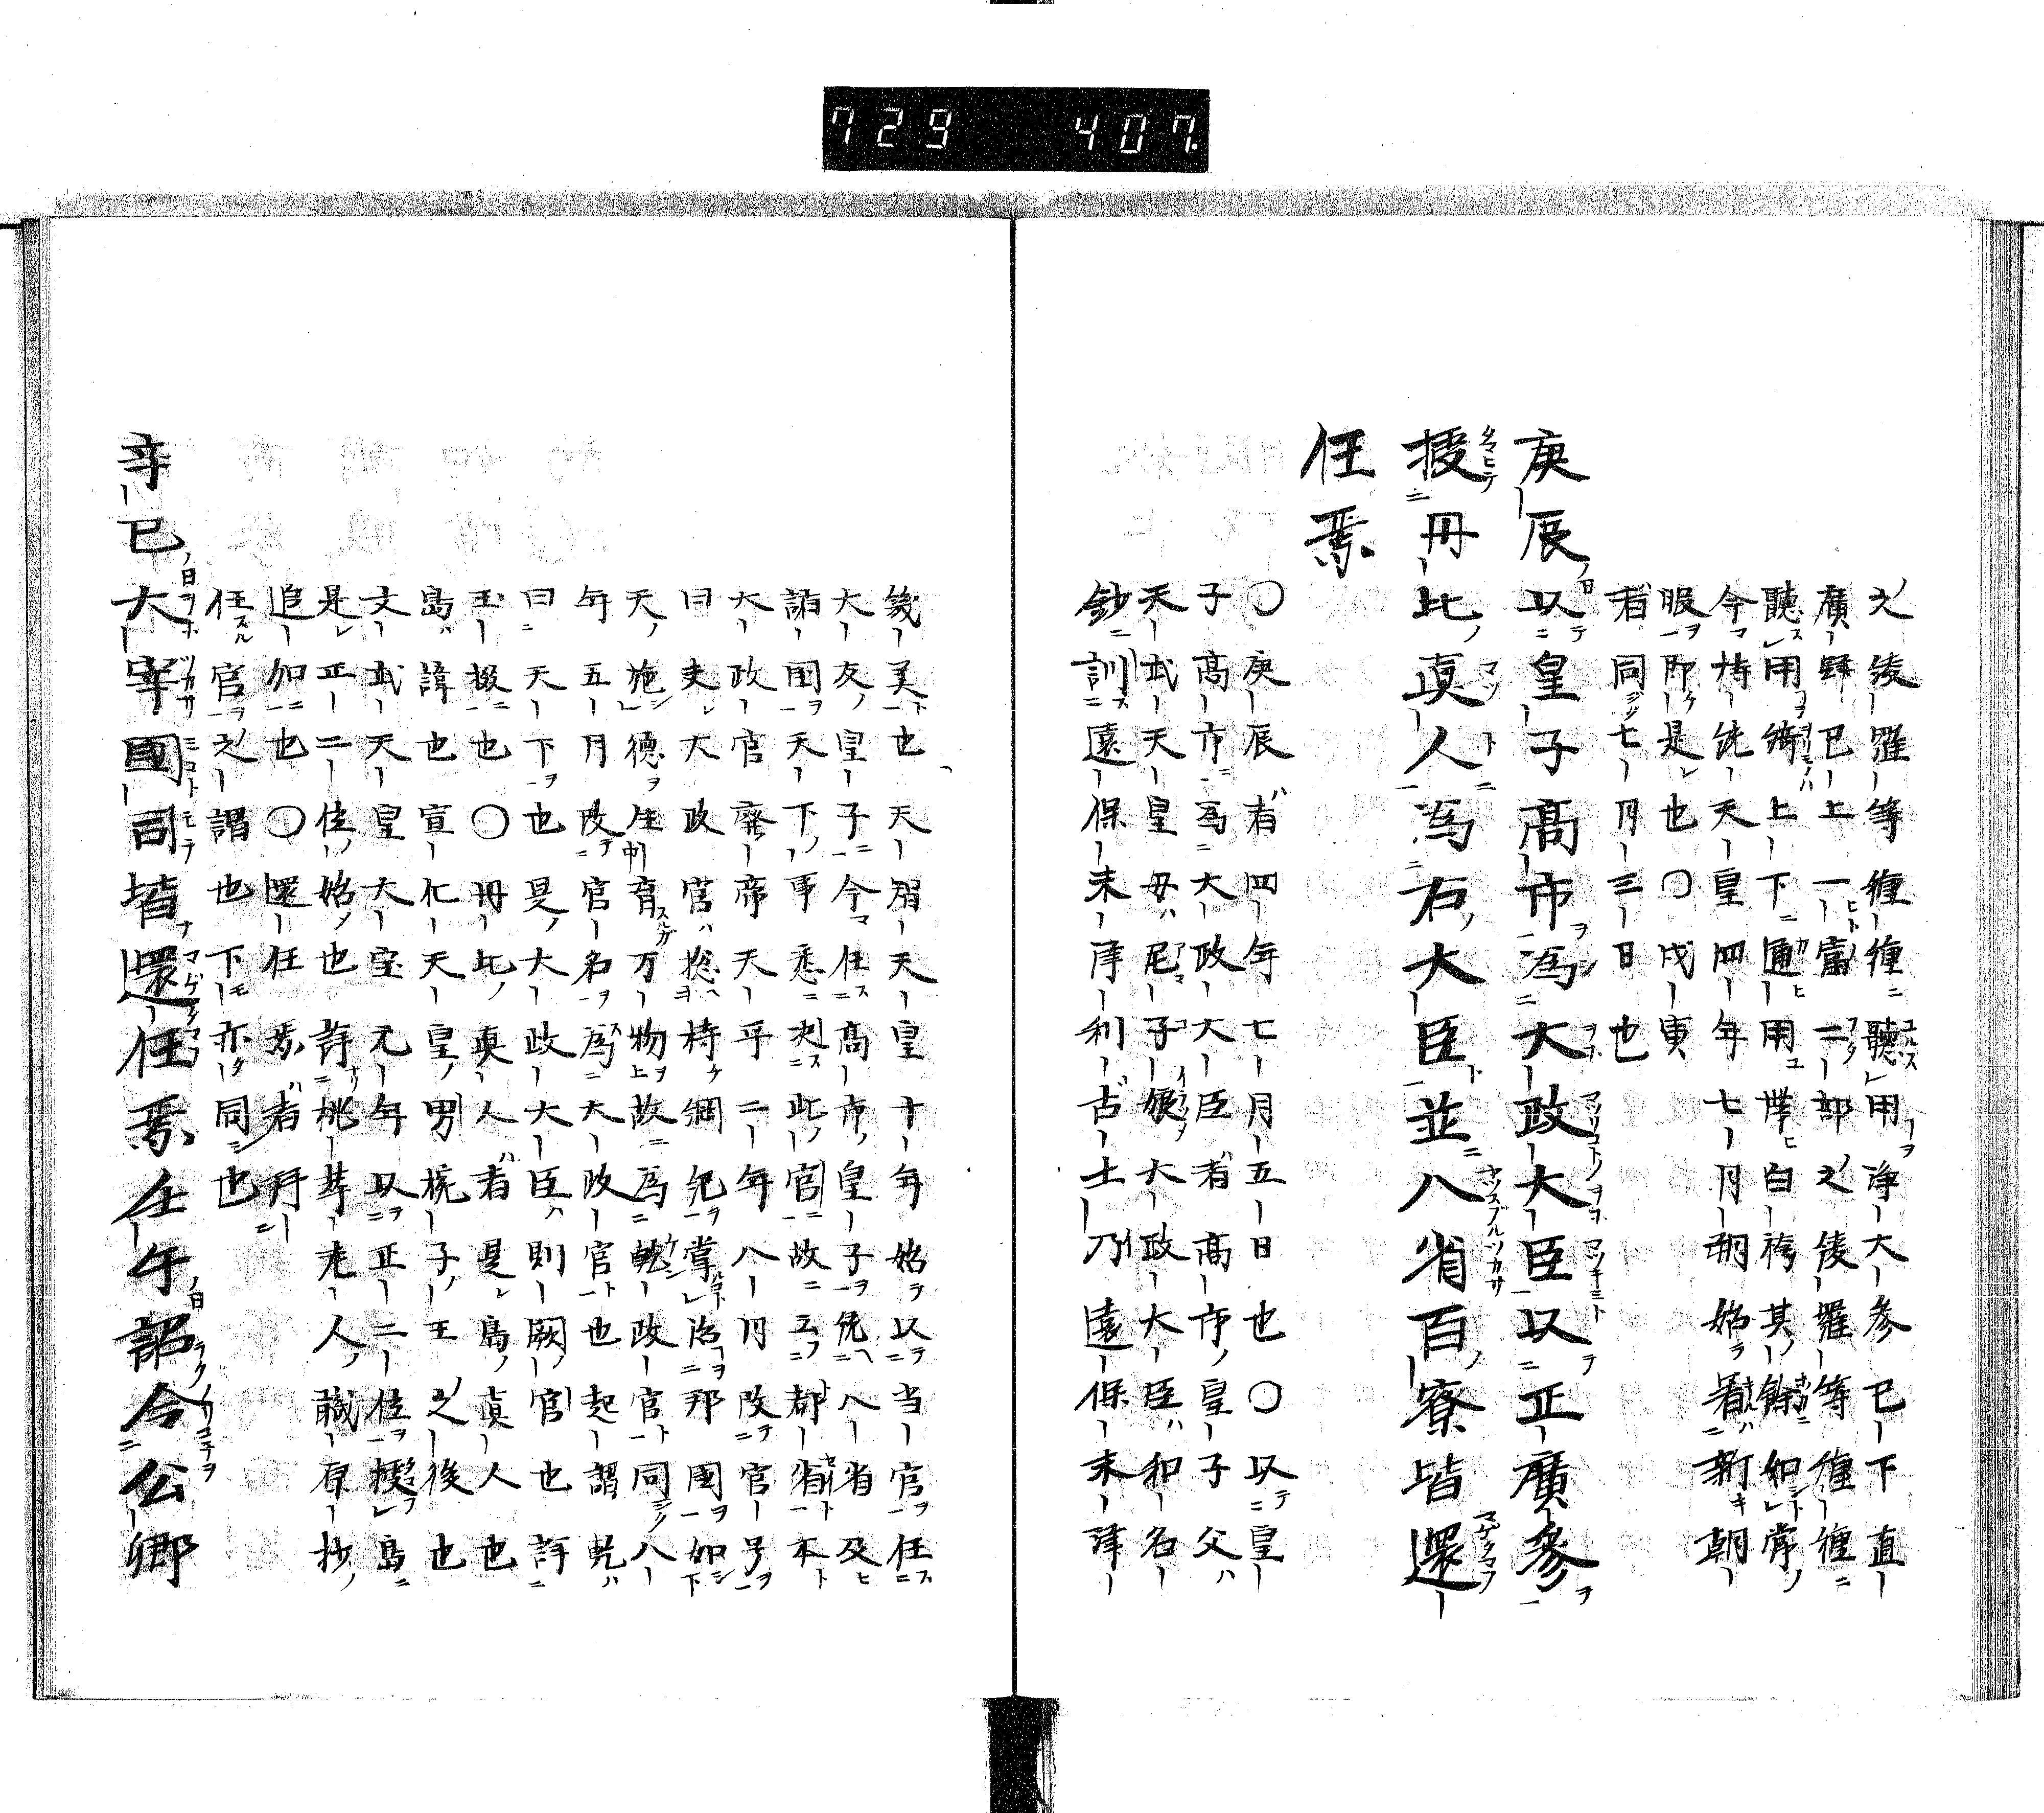 729 407.
之綾羅等種種聽用淨大參巳下直
廣肆巳上一富二部之綾羅等種種
聽用綺上下通用帶白袴其餘如常
今持統天皇四年七月朔始著新朝
服即是也〇戊寅
者同七月三日也
庚辰以皇子高市爲大政大臣以正廣參
授丹比真人爲右大臣並八省百寮皆還
任焉
〇庚辰者四年七月五日也〇以皇
子高市爲大政大臣者高市皇子父
天武天皇母尼子娘大政大臣和名
鈔訓遠保末津利古土乃遠保末津
幾美也天智天皇十年始以当官任
大友皇子今任高市皇子凭八省及
諸国天下事悉判此官故云都省本
大政官廢帝天平二年八月改官号
曰夫大政官惣持綱紀掌治邦國如
天施德生育万物故爲乾政官同八
年五月改官名爲大政官也起謂乾
曰天下也是大政大臣則厥官也許
玉掇也〇丹比真人者是島真人也
島諱也宣化天皇男梔子王之後也
文武天皇大宝元年以正二位授島
是正二位始也許桃華老人職原抄
追加也〇還任焉者拜
任官之謂也下亦同也
辛巳大宰國司皆還任焉壬午詔令公卿